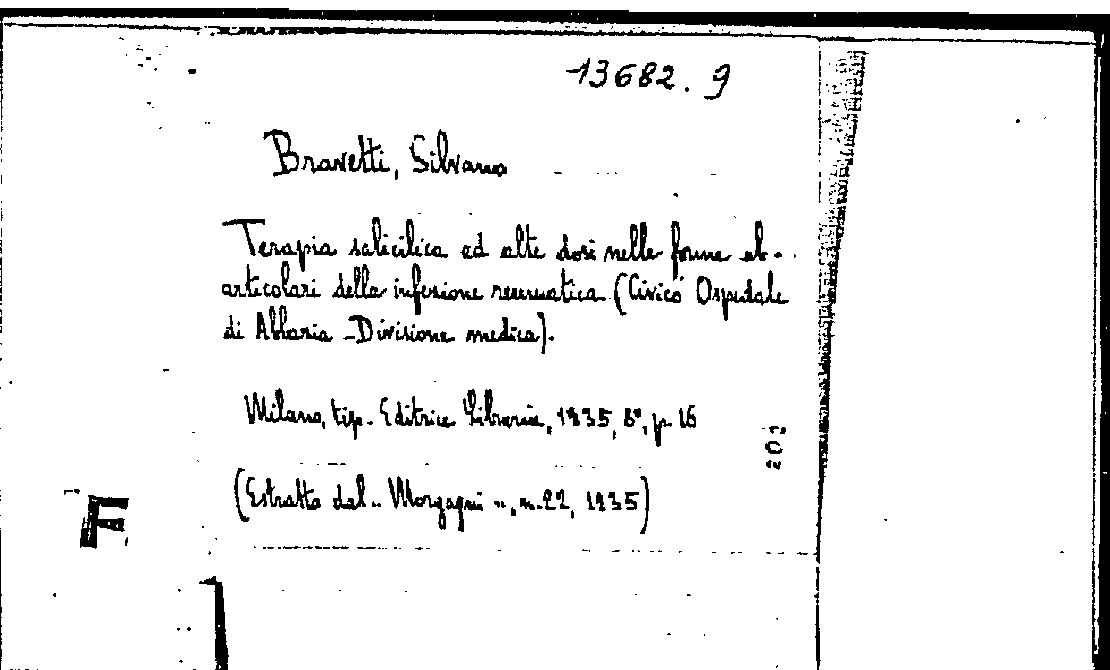 13682.9
Bravetti, Silvano
Terapia salicilica ad alte dosi nelle forme ab-
articolari della infezione reumatica (Civico Ospedale
di Abbazia - Divisione medica).
Milano, tip. Editrice Libraria, 1935, 8°, p. 16
(Estratto dal „ Morgagni „, n. 22, 1935)
202
F